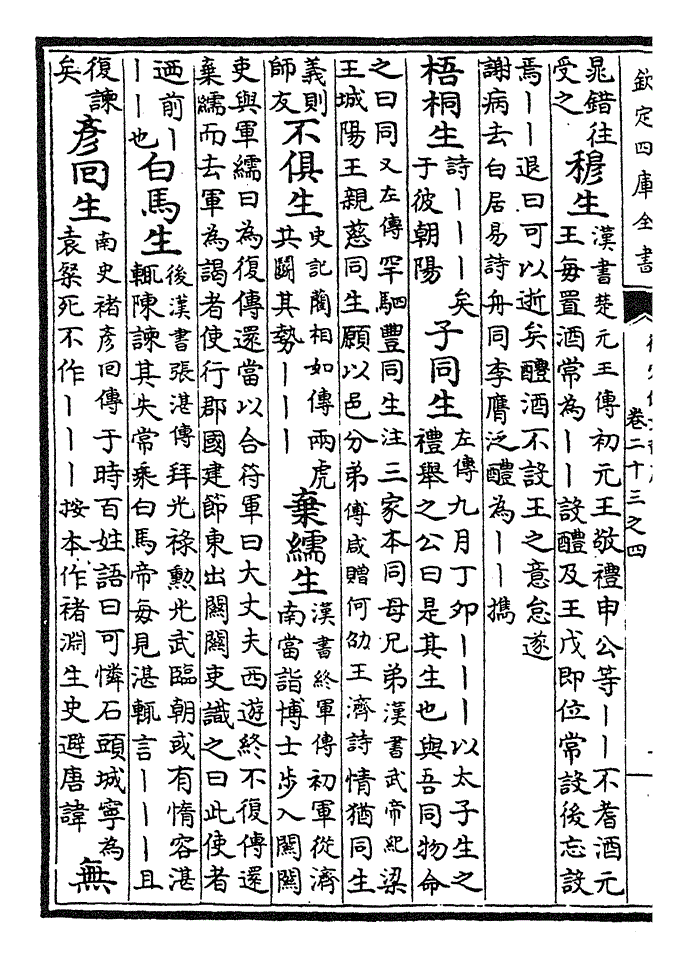 欽定四庫全書
卷二十三之四
晁錯往
受之
穆生
漢書楚元王傳初元王敬禮申公等丨丨不耆酒元
王每置酒常為丨丨設醴及王戊即位常設後忘設
焉丨丨退曰可以逝矣醴酒不設王之意怠遂
謝病去白居易詩舟同李膺泛醴為丨丨攜
梧桐生
詩丨丨丨矣
于彼朝陽
子同生
左傳九月丁夘丨丨丨以太子生之
禮舉之公曰是其生也與吾同物命
之曰同又左傳罕駟豐同生注三家本同母兄弟漢書武帝紀梁
王城陽王親慈同生願以邑分弟傅咸贈何劭王濟詩情猶同生
義則
師友
不俱生
史記藺相如傳兩虎
共鬭其勢丨丨丨
棄繻生
漢書終軍傳初軍從濟
南當詣博士歩入關關
吏與軍繻曰為復傳還當以合符軍曰大丈夫西遊終不復傳還
棄繻而去軍為謁者使行郡國建節東出關關吏識之曰此使者
迺前丨
丨丨也
白馬生
後漢書張湛傳拜光祿勲光武臨朝或有惰容湛
輒陳諫其失常乘白馬帝每見湛輒言丨丨丨且
復諫
矣
彥回生
南史褚彥回傳于時百姓語曰可憐石頭城寧為
袁粲死不作丨丨丨按本作褚淵生史避唐諱
無